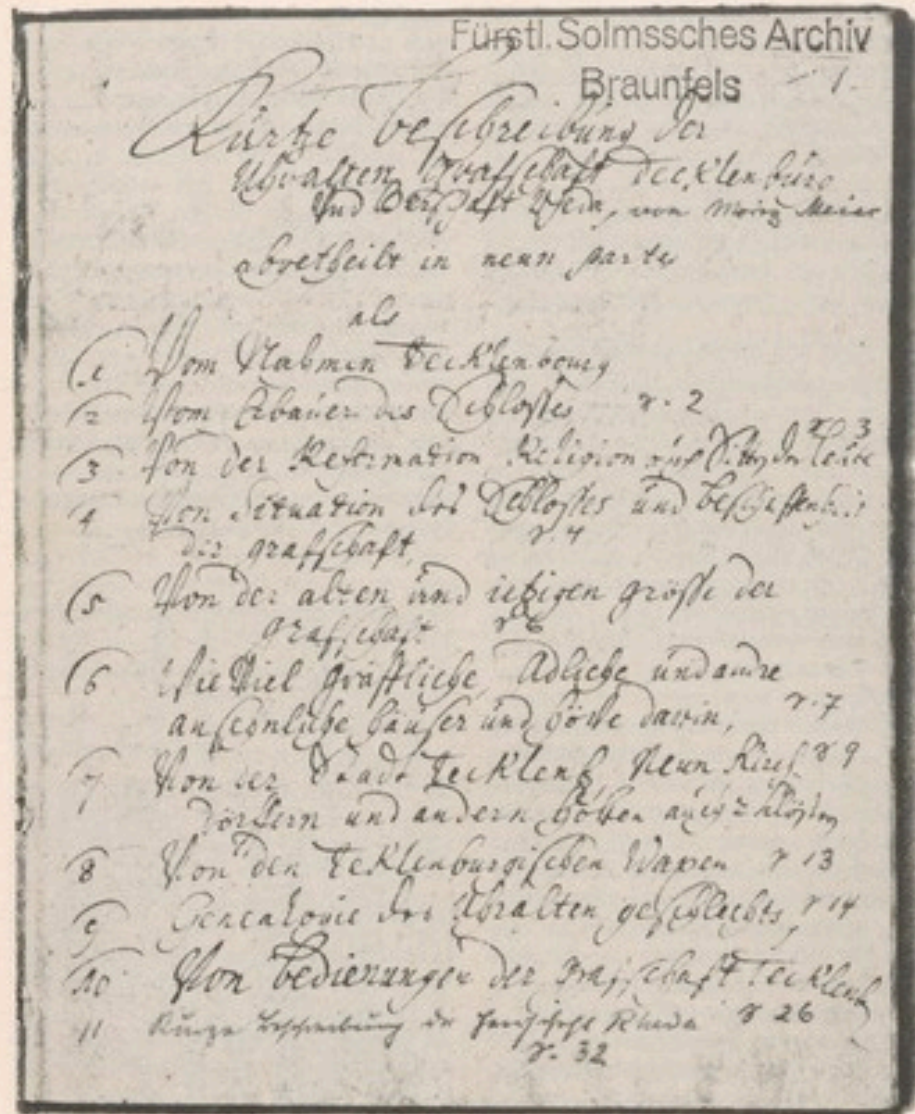 Fürstl. Solmssches Archiv
Braunfels 1.
Kurtze beschreibung der
Uhralten Graffschafft Tecklenburg
Und Herschafft Rheda, von Moritz Meier
abgetheilt in neun parte
als
1 Vom Nahmen Tecklenbourg
2 Vom Erbauer des Schlosses r. 2
3 Von der Reformation Religion und Sitten der leute r. 3
4 Von Situation des Schlosses und beschaffenheit
der graffschaft, r. 4
5 Von der alten und ietzigen grösse der
graffschaft r 6
6 Wie Viel gräffliche, Adliche und andre
ansehnliche häuser und höve darin, r. 7
7 Von der Stadt Tecklenb. Neun Kirch r 9
dörffern und andern höven auch 2 Klöstern
8 Von den Teklenburgischen Wapen r 13
9 Genealogie des Uhralten geschlechts, r 14
10 Von bedienungen der graffschaft Tecklenb
11 Kurze beschreibung der herrschaft Rheda r 26
r. 32